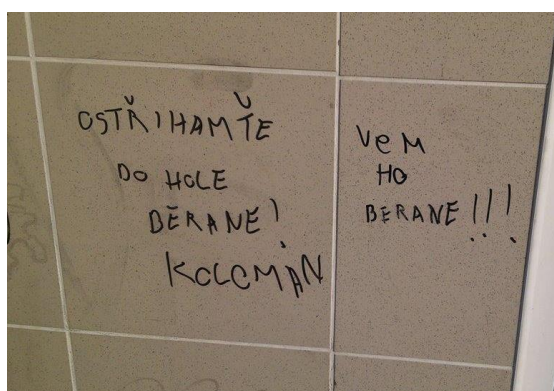 OSTŘIHAMŤE
DO HOLE
BĚRANE!
KOLOMAN
VeM
HO
BERANE!!!